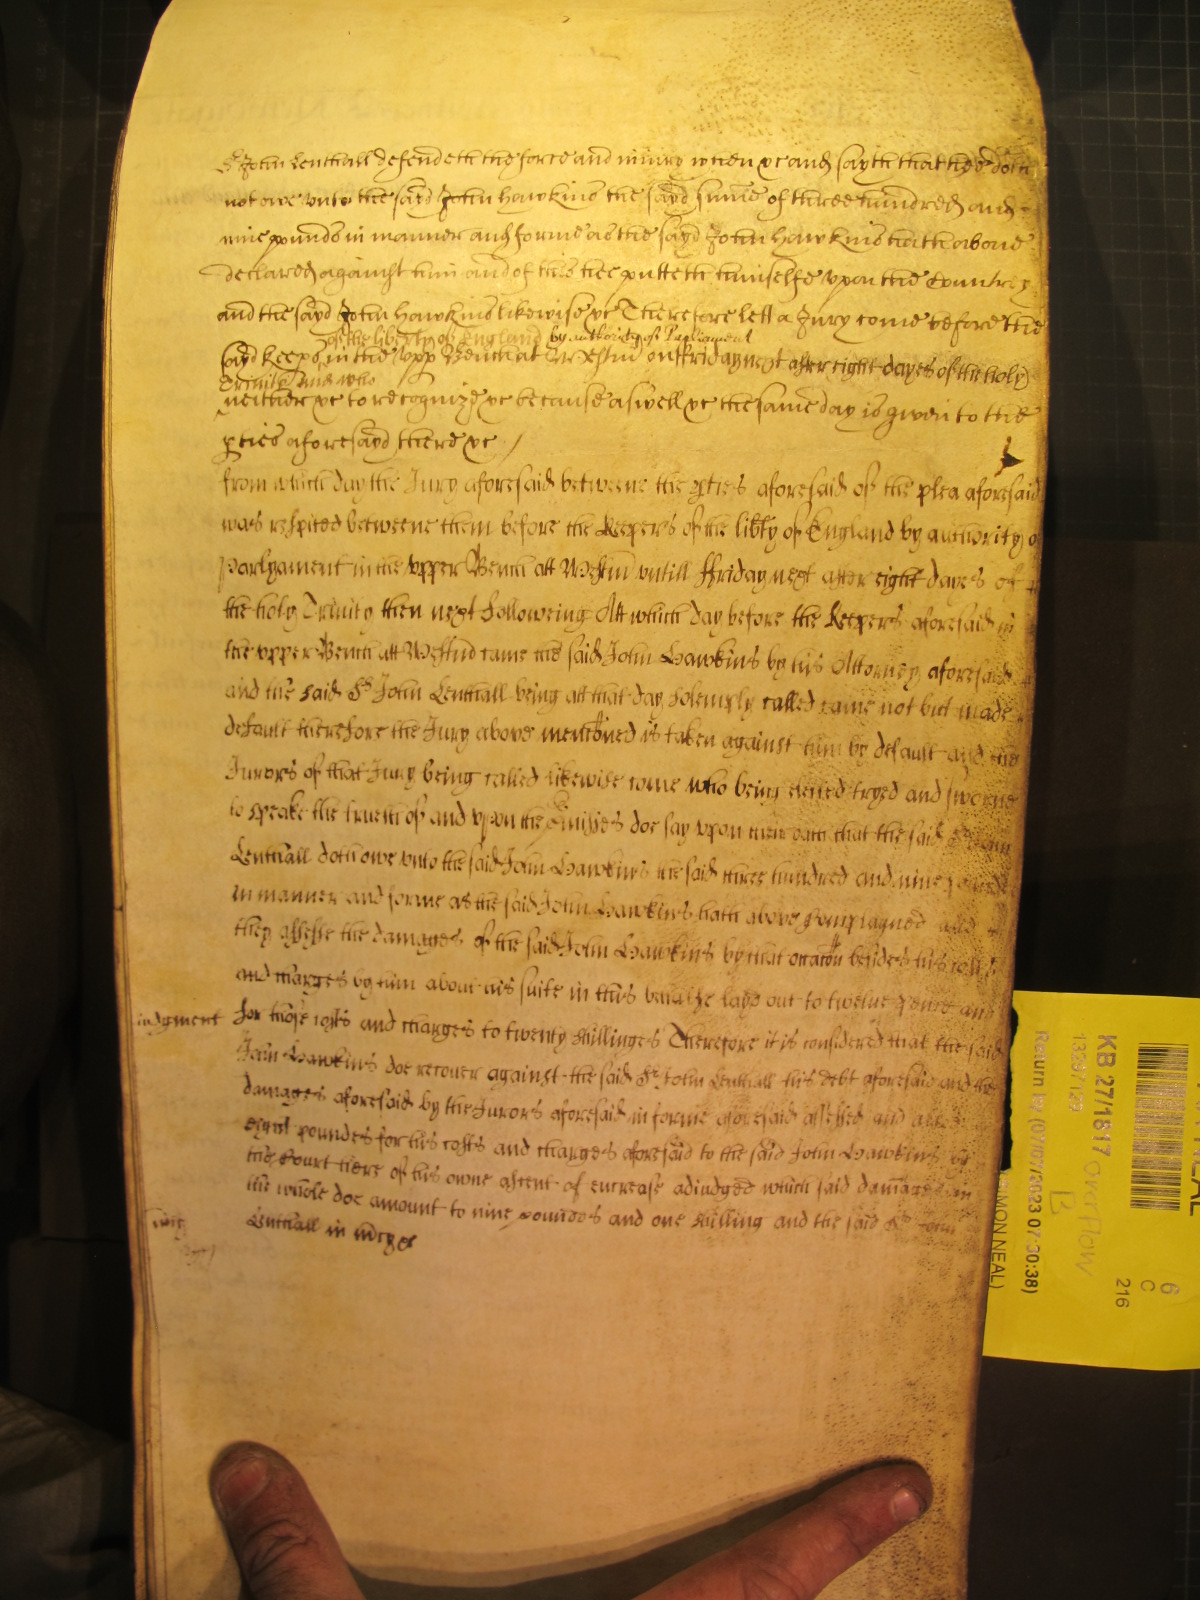 Sr John Lenthall defendeth the force and iniury when &c and sayth that hee doth
not owe unto the sayd John Hawkins the sayd summe of three hundred and
nine pounds in manner and forme as the sayd John Hawkins hath above
declared against him and of this hee putteth himselfe upon the Countrey
and the sayd John Hawkins likewise &c Therefore lett a Jury come before the
of the liberty of England by authority of Parliament
sayd keepers in the upp Bench at Westm on ffriday next after eight dayes of the holy
Trinity and who
neither &c to recognize &c because aswell &c the same day is given to the
pties aforesayd there &c
from which day the Jury aforesaid betweene the pties aforesaid of the plea aforesaid
was respited betweene them before the Keepers of the libty of England by authority of
Parlyament in the upper Bench att Westm untill ffriday next after eight dayes of
the holy Trinity then next followeing Att which day before the Keepers aforesaid in
the upper Bench att Westmr came the said John Hawkins by his Attorney aforesaid
and the said Sr John Lenthall being att that day solemply called came not but made
default therefore the Jury above mencõned is taken against him by default and the
Jurors of that Jury being called likewise come who being elected tryed and sworne
to speake the trueth of and upon the pmisses doe say upon their oath that the said Sr John
Lenthall doth owe unto the said John Hawkins the said three hundred and nine pounds
in manner and forme as the said John Hawkins hath above complayned and
they assesse the damages of the said John Hawkins by that occacõn besides his costs
and charges by him about his suite in this behalfe layd out to twelve pence and
iudgment for those costs and charges to twenty shillinges Therefore it is considered that the said
John Hawkins doe recover against the said Sr John Lenthall his debt aforesaid and the
damages aforesaid by the Jurors aforesaid in forme aforesaid assessed and
eight poundes for his costs and charges aforesaid to the said John Hawkins by
the Court here of his owne assent of encrease adiudged which said damages in
the whole doe amount to nine poundes and one shilling and the said Sr John
Lenthall in mercy &c
KB 27/1817 overflow
B
Return by (07/07/2023 07:30:38)
(SIMON NEAL)
6
C
216